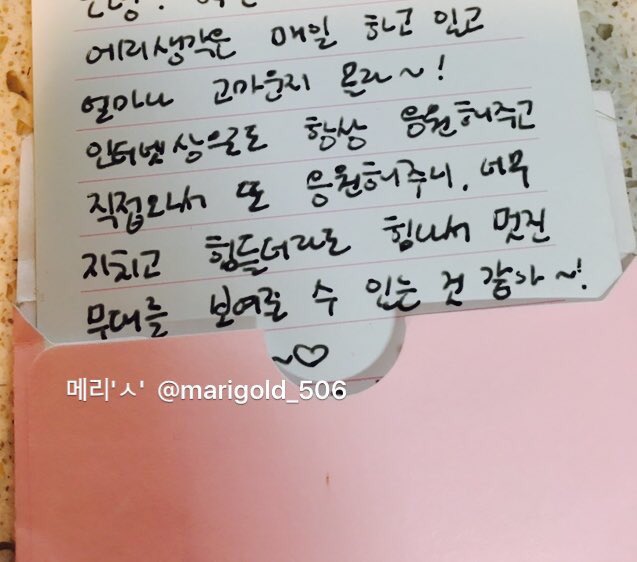 에리생각은 매일 하고 있고
얼마나 고마운지 몰라~!
인터넷상으로도 항상 응원해주고
직접와서 또 응원해주니, 너무
지치고 힘들더라도 힘나서 멋진
무대를 보여줄 수 있는 것 같아~!
~♡
메리'ㅅ' @marigold_506